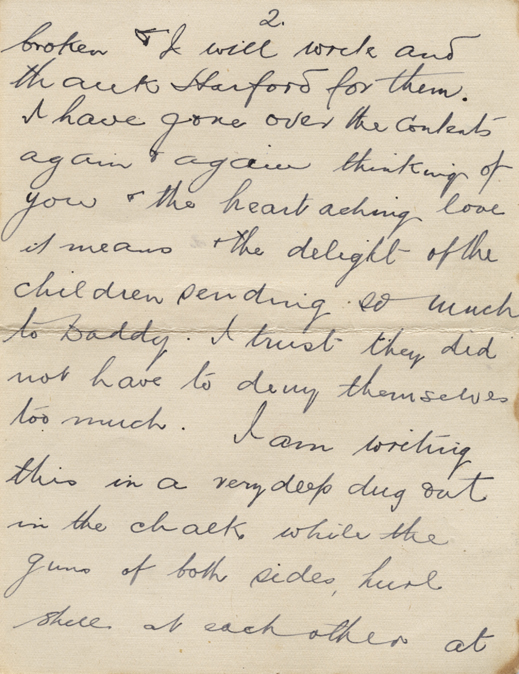 2.
broken & I will write and
thank Harford for them.
I have gone over the contents
again & again thinking of
you & the heart aching love
it means & the delight of the
children sending so much
to Daddy. I trust they did
not have to deny themselves
too much. I am writing
this in a very deep dug out
in the chalk while the
guns of both sides, hurl
shell at each other at